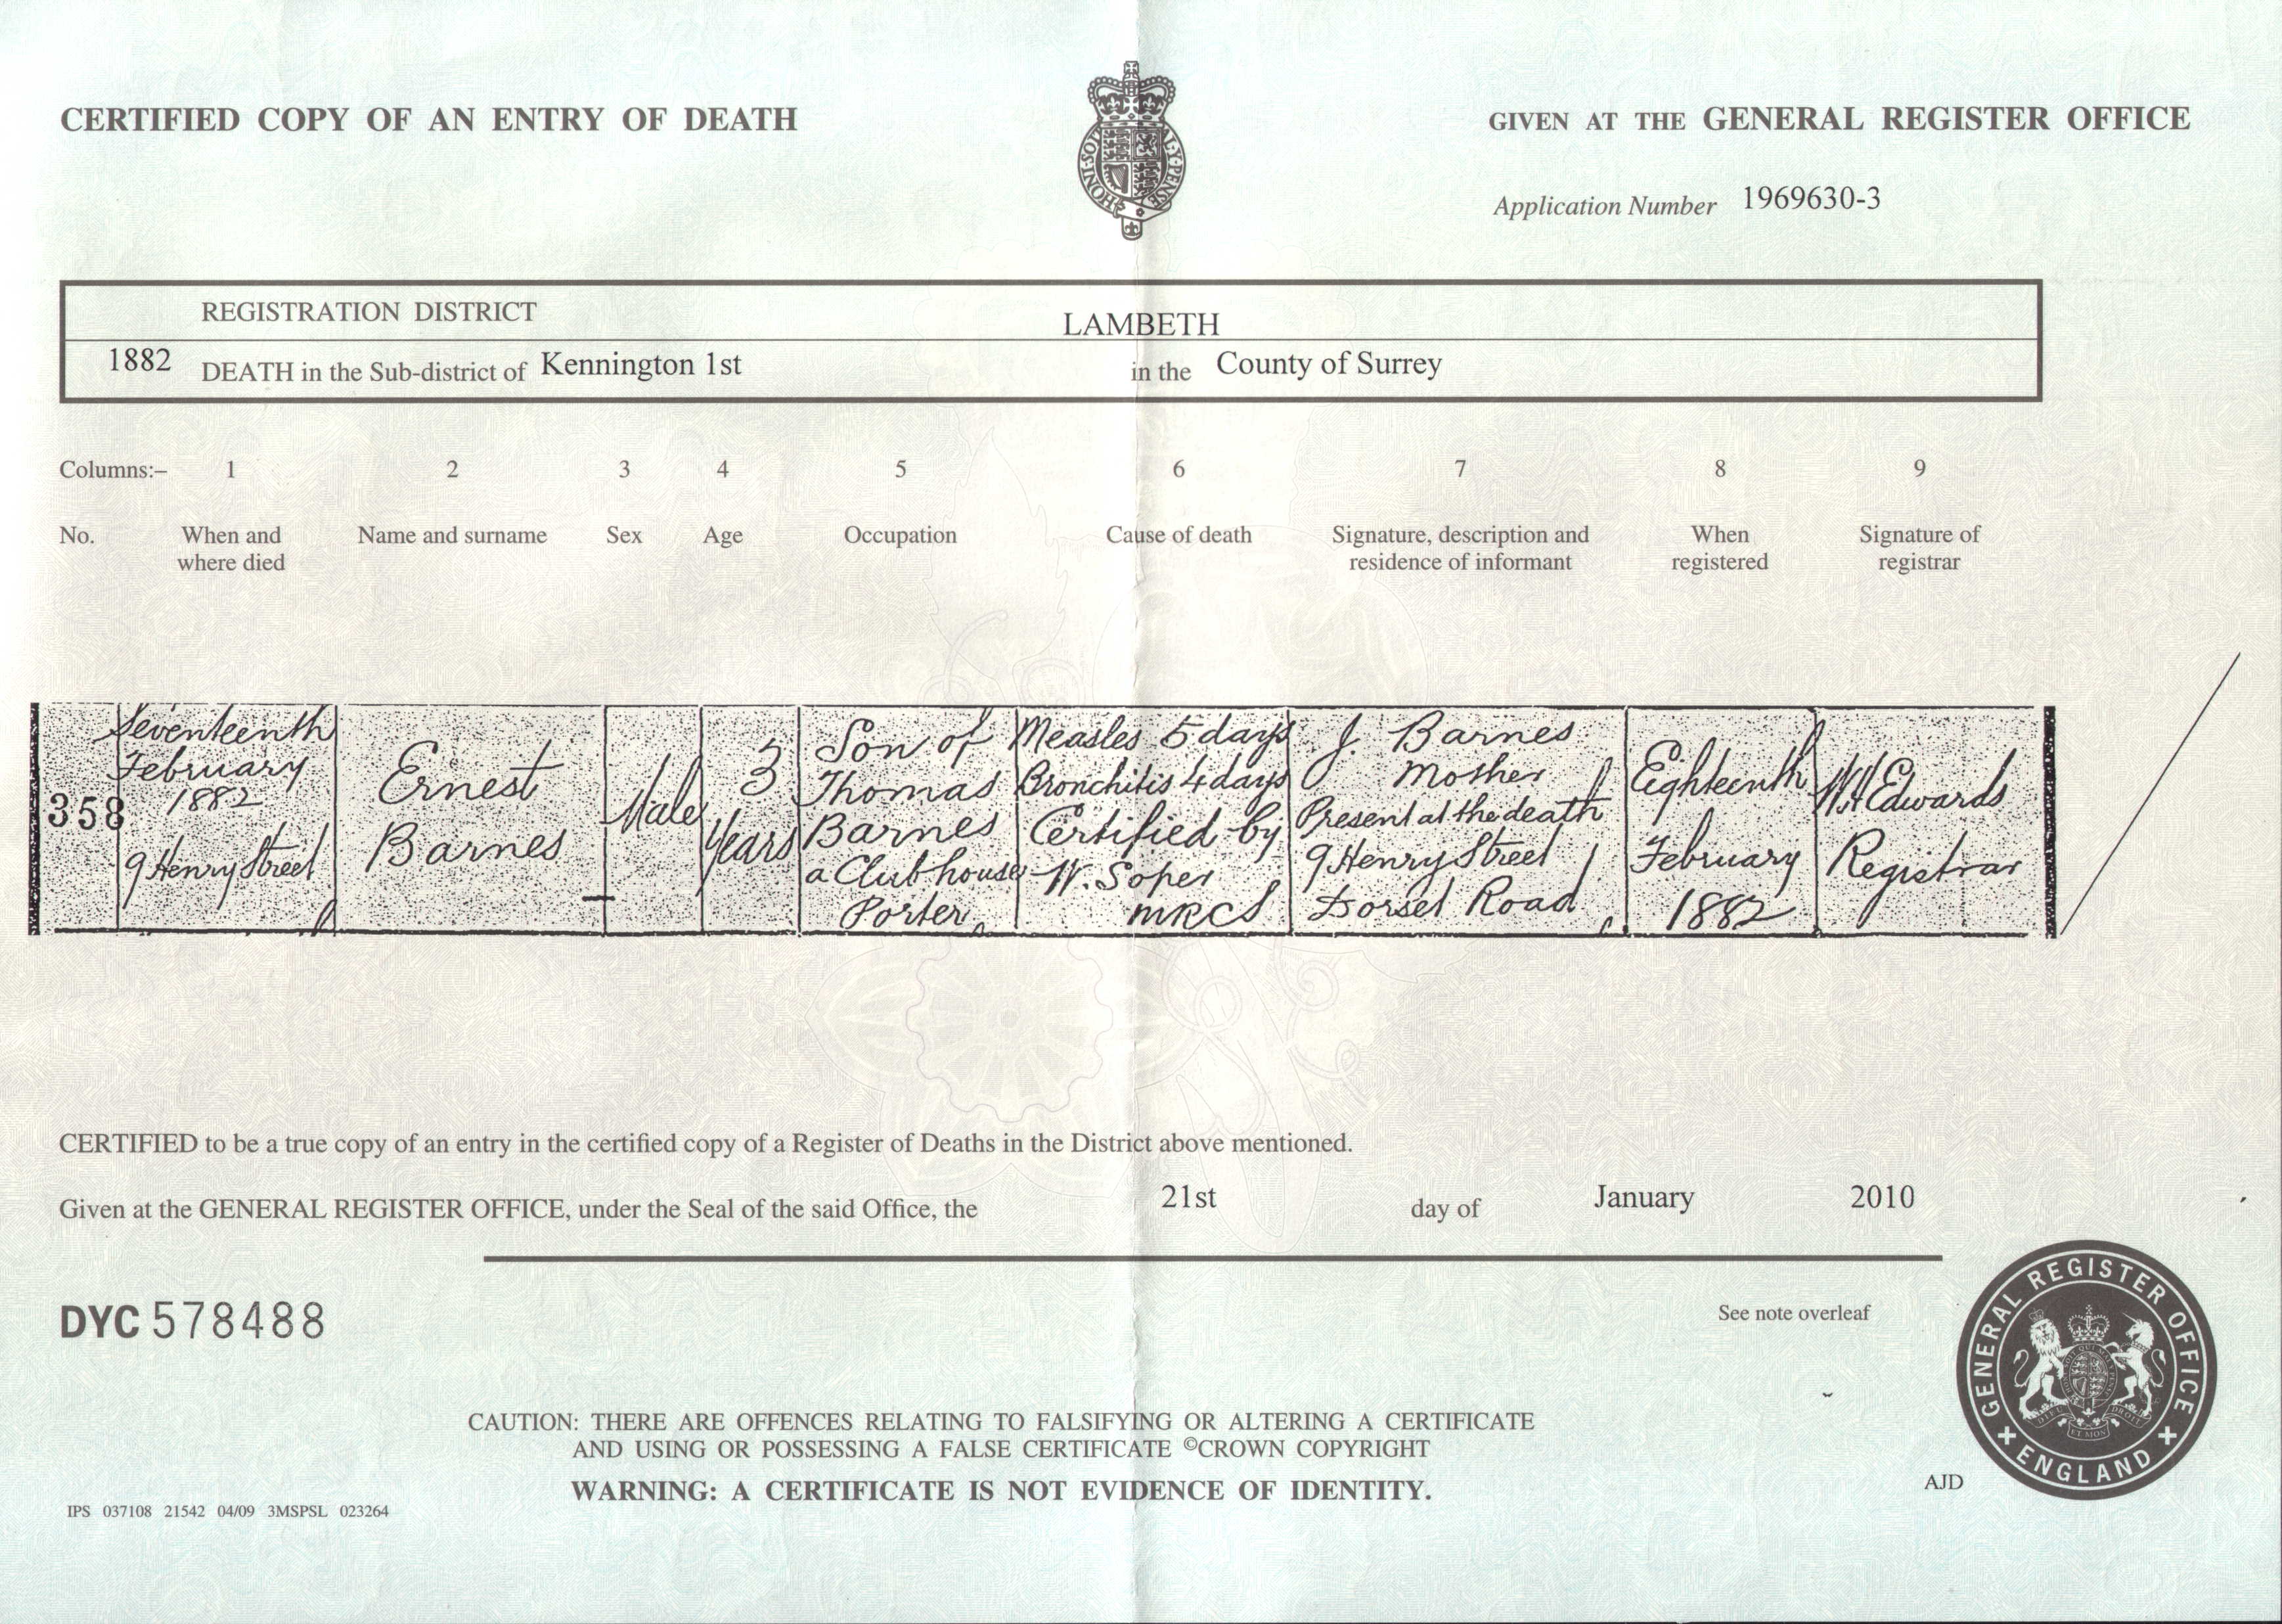 CERTIFIED COPY OF AN ENTRY OF DEATH
GIVEN AT THE GENERAL REGISTER OFFICE
HONI SOIT QUI MAL Y PENSE
Application Number 1969630-3
REGISTRATION DISTRICT LAMBETH
1882 DEATH in the Sub-district of Kennington 1st in the County of Surrey
Columns:– 1 2 3 4 5 6 7 8 9
No.
When and
where died
Name and surname
Sex
Age
Occupation
Cause of death
Signature, description and
residence of informant
When
registered
Signature of
registrar
358
Seventeenth
February
1882
9 Henry Street
Ernest
Barnes
Male
3
Years
Son of
Thomas
Barnes
a Club house
Porter
Measles 5 days
Bronchitis 4 days
Certified by
W. Soper
MRCS
J. Barnes
Mother
Present at the death
9 Henry Street
Dorset Road
Eighteenth
February
1882
W H Edwards
Registrar
CERTIFIED to be a true copy of an entry in the certified copy of a Register of Deaths in the District above mentioned.
Given at the GENERAL REGISTER OFFICE, under the Seal of the said Office, the 21st day of January 2010
DYC 578488
See note overleaf
GENERAL REGISTER OFFICE
ENGLAND
CAUTION: THERE ARE OFFENCES RELATING TO FALSIFYING OR ALTERING A CERTIFICATE
AND USING OR POSSESSING A FALSE CERTIFICATE ©CROWN COPYRIGHT
WARNING: A CERTIFICATE IS NOT EVIDENCE OF IDENTITY.
AJD
IPS 037108 21542 04/09 3MSPSL 023264